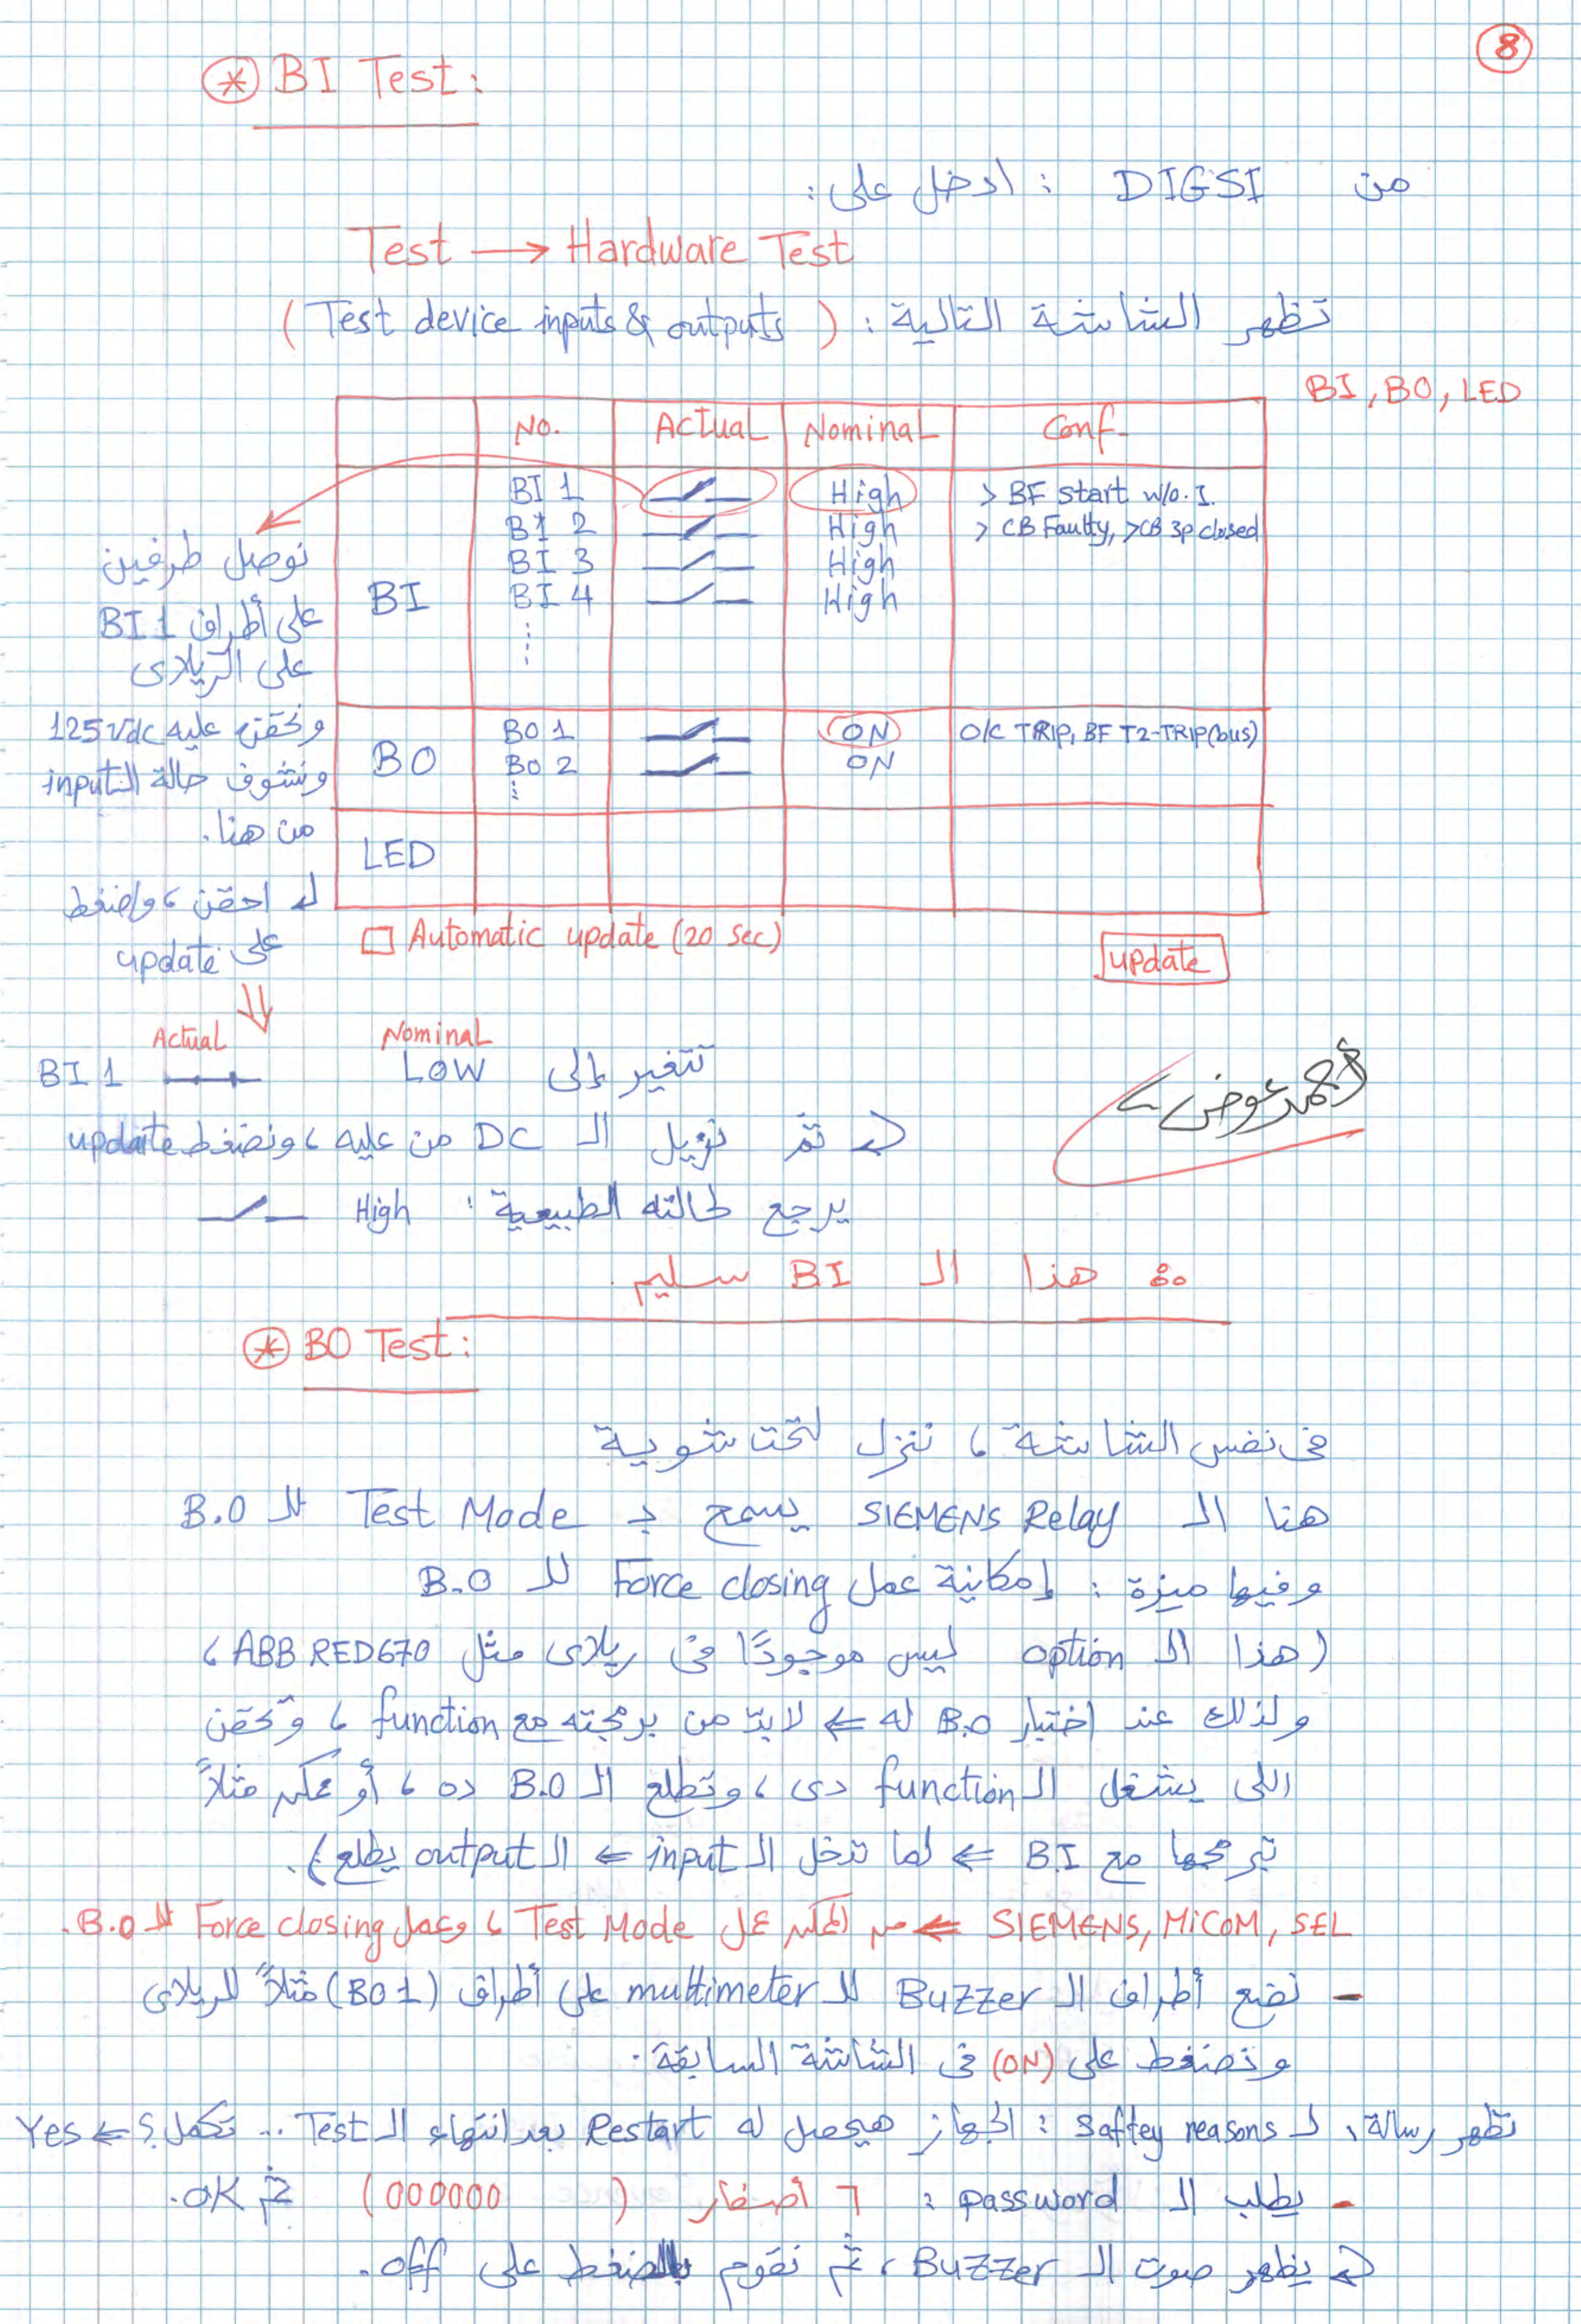 8
* BI Test:
من DIGSI : ادخل على:
Test → Hardware Test
تظهر الشاشة التالية : (Test device inputs & outputs)
BI, BO, LED
No. Actual Nominal Conf.
BI
BI 1 High > BF start w/o. I.
BI 2 High > CB Faulty, >CB 3p closed
BI 3 High
BI 4 High
BO
BO 1 ON O/C TRIP, BF T2-TRIP(bus)
BO 2 ON
LED
Automatic update (20 sec)
update
نوصل طرفين
على أطراف BI 1
على الريلاى
ونحقن عليه 125 Vdc
ونشوف حالة الـ input
من هنا.
احقن، واضغط
على update
Actual Nominal
BI 1 تتغير إلى LOW
ثم نزيل الـ DC من عليه، ونضغط update
يرجع لحالته الطبيعية: High
أحمد عوض
∴ هذا الـ BI سليم.
* BO Test:
فى نفس الشاشة، ننزل لتحت شوية
هنا الـ SIEMENS Relay يسمح بـ Test Mode للـ B.O
وفيها ميزة : إمكانية عمل Force closing للـ B.O
(هذا الـ option ليس موجودًا فى ريلاى مثل ABB RED670،
ولذلك عند اختبار B.O له ⇐ لابدّ من برمجته مع function، وتحقن
اللى يشغل الـ function دى، وتطلع الـ B.O ده، أو ممكن مثلاً
تبرمجها مع BI ⇐ لما تدخل الـ input ⇐ الـ output يطلع).
SIEMENS, MiCOM, SEL ⇐ من الممكن عمل Test Mode، وعمل Force closing للـ B.O.
- نضع أطراف الـ Buzzer للـ multimeter على أطراف (BO 1) مثلاً للريلاى
ونضغط على (ON) فى الشاشة السابقة.
تظهر رسالة، لـ Saftey reasons : الجهاز هيحصل له Restart بعد انتهاء الـ Test ... تكمل؟ ⇐ Yes
- يطلب الـ password : ٦ أصفار (000000) ثم OK.
يظهر صوت الـ Buzzer، ثم نقوم بالضغط على off.